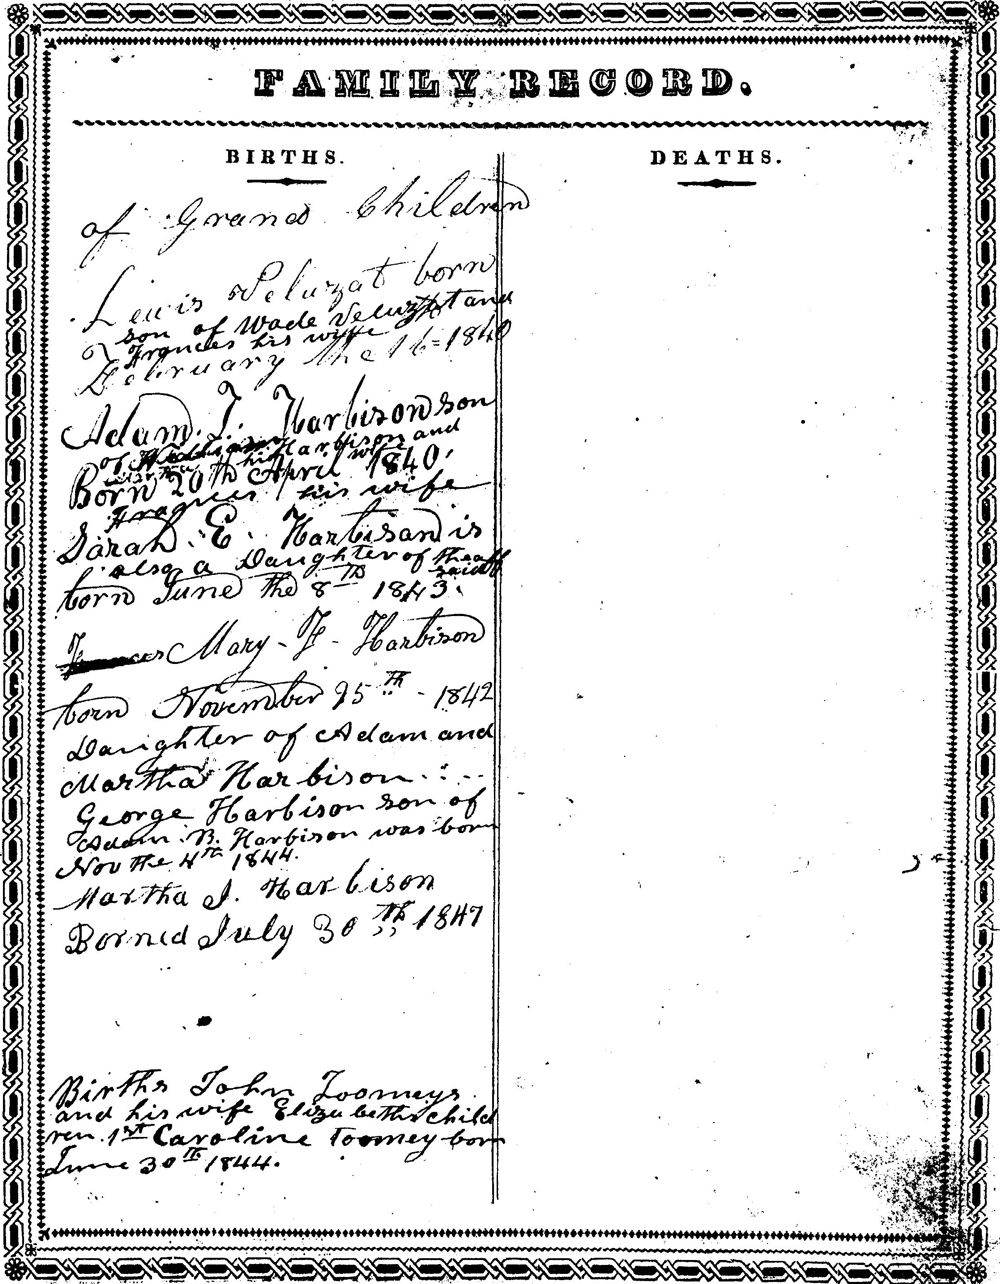 FAMILY RECORD.
BIRTHS.
DEATHS.
of Grand Children
Lewis Veluzat born
son of Wade Veluzat and
Frances his wife
February the 16 = 1840
Adam. T. Harbison son
of Harbison and
his wife
Born 20th April 1840.
Frances his wife
Sarah. E. Harbison is
also a Daughter of the aff
said
born June the 8th 1843.
Mary - F - Harbison
born November 25th - 1842
Daughter of Adam and
Martha Harbison
George Harbison son of
Adam. B. Harbison was born
Nov the 4th 1844.
Martha J. Harbison
Borned July 30th 1847
Births John Toomeys
and his wife Elizabeths child
ren. 1st Caroline Toomey born
June 30th 1844.